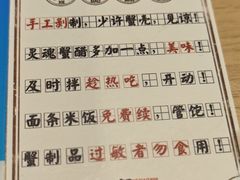 手工剥制,少许蟹壳,见谅!
灵魂蟹醋多加一点,美味!
及时拌趁热吃,开动!
面条米饭免费续,管饱!
蟹制品过敏者勿食用!